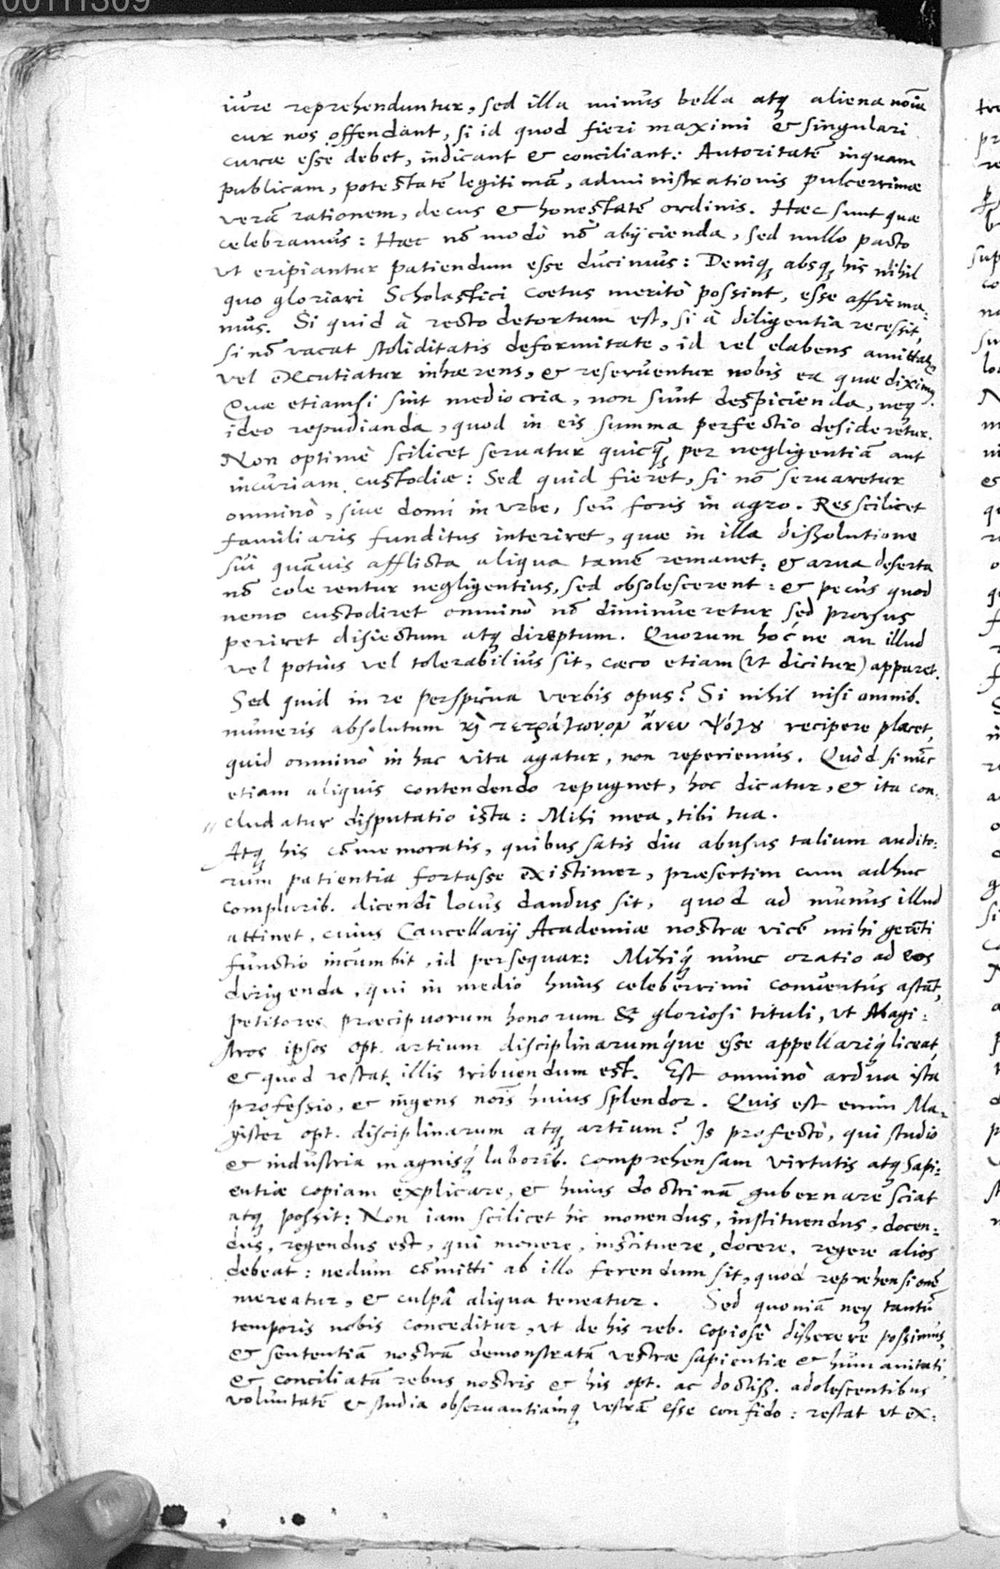 00111309
iure reprehenduntur, sed illa minus bella atq; aliena noīa
cur nos offendant, si id quod fieri maximi & singulari
curæ esse debet, indicant & conciliant: Autoritatē inquam
publicam, potestatē legitimā, administrationis pulcerrimæ
verā rationem, decus & honestatē ordinis. Hæc sunt quæ
celebramus: Hæc nō modò nō abijcienda, sed nullo pacto
ut eripiantur patiendum esse ducimus: Deniq; absq; his nihil
quo gloriari Scholastici coetus meritò possint, esse affirma-
mus. Si quid à recto detortum est, si à diligentia recessit,
si nō vacat stoliditatis deformitate, id vel elabens amittat,
vel excutiatur inhærens, & reseruentur nobis ea quæ diximus.
Quæ etiamsi sint mediocria, non sunt despicienda, neq;
ideo repudianda, quod in eis summa perfectio desideretur.
Non optimè scilicet seruatur quicq; per negligentiā aut
incuriam custodiæ: Sed quid fieret, si nō seruaretur
omninò, siue domi in urbe, seu foris in agro. Res scilicet
familiaris funditus interiret, quæ in illa dissolutione
sui quāuis afflicta aliqua tamē remanet: & arua deserta
nō colerentur negligentius, sed obsolescerent: & pecus quod
nemo custodiret omninò nō diminueretur sed prorsus
periret disiectum atq; direptum. Quorum hoc'ne an illud
vel potius vel tolerabilius sit, cæco etiam (ut dicitur) apparet.
Sed quid in re perspicua verbis opus? Si nihil nisi omnib.
numeris absolutum ϗ τετράγωνον ἄνευ ψόγȣ recipere placet,
quid omninò in hac vita agatur, non reperiemus. Quòd si nūc
etiam aliquis contendendo repugnet, hoc dicatur, & ita con-
cludatur disputatio ista: Mihi mea, tibi tua.
Atq; his cōmemoratis, quibus satis diu abusus talium audito-
rum patientia fortasse existimer, præsertim cum adhuc
complurib. dicendi locus dandus sit, quod ad munus illud
attinet, cuius Cancellarij Academiæ nostræ vicē mihi gerēti
functio incumbit, id persequar: Mihiq; nunc oratio ad eos
dirigenda, qui in medio huius celeberrimi conuentus astāt,
petitores præcipuorum honorum & gloriosi tituli, ut Magi-
stros ipsos opt. artium disciplinarumque esse appellariq; liceat,
& quod restat illis tribuendum est. Est omninò ardua ista
professio, & ingens nois huius splendor. Quis est enim Ma-
gister opt. disciplinarum atq; artium? Is profectò, qui studio
& industria magnisq; laborib. comprehensam virtutis atq; sapi-
entiæ copiam explicare, & huius doctrinā gubernare sciat
atq; possit: Non iam scilicet hic monendus, instituendus, docen-
dus, regendus est, qui monere, instituere, docere, regere alios
debeat: nedum cōmitti ab illo ferendum sit, quod reprehensionē
mereatur, & culpâ aliqua teneatur. Sed quoniā neq; tantū
temporis nobis conceditur, ut de his reb. copiosè disserere possimus,
& sententiā nostrā demonstratā vestræ sapientiæ & humanitati,
& conciliatā rebus nostris & his opt. ac doctiss. adolescentibus
voluntatē & studia obseruantiamq; vestrā esse confido: restat ut ex-